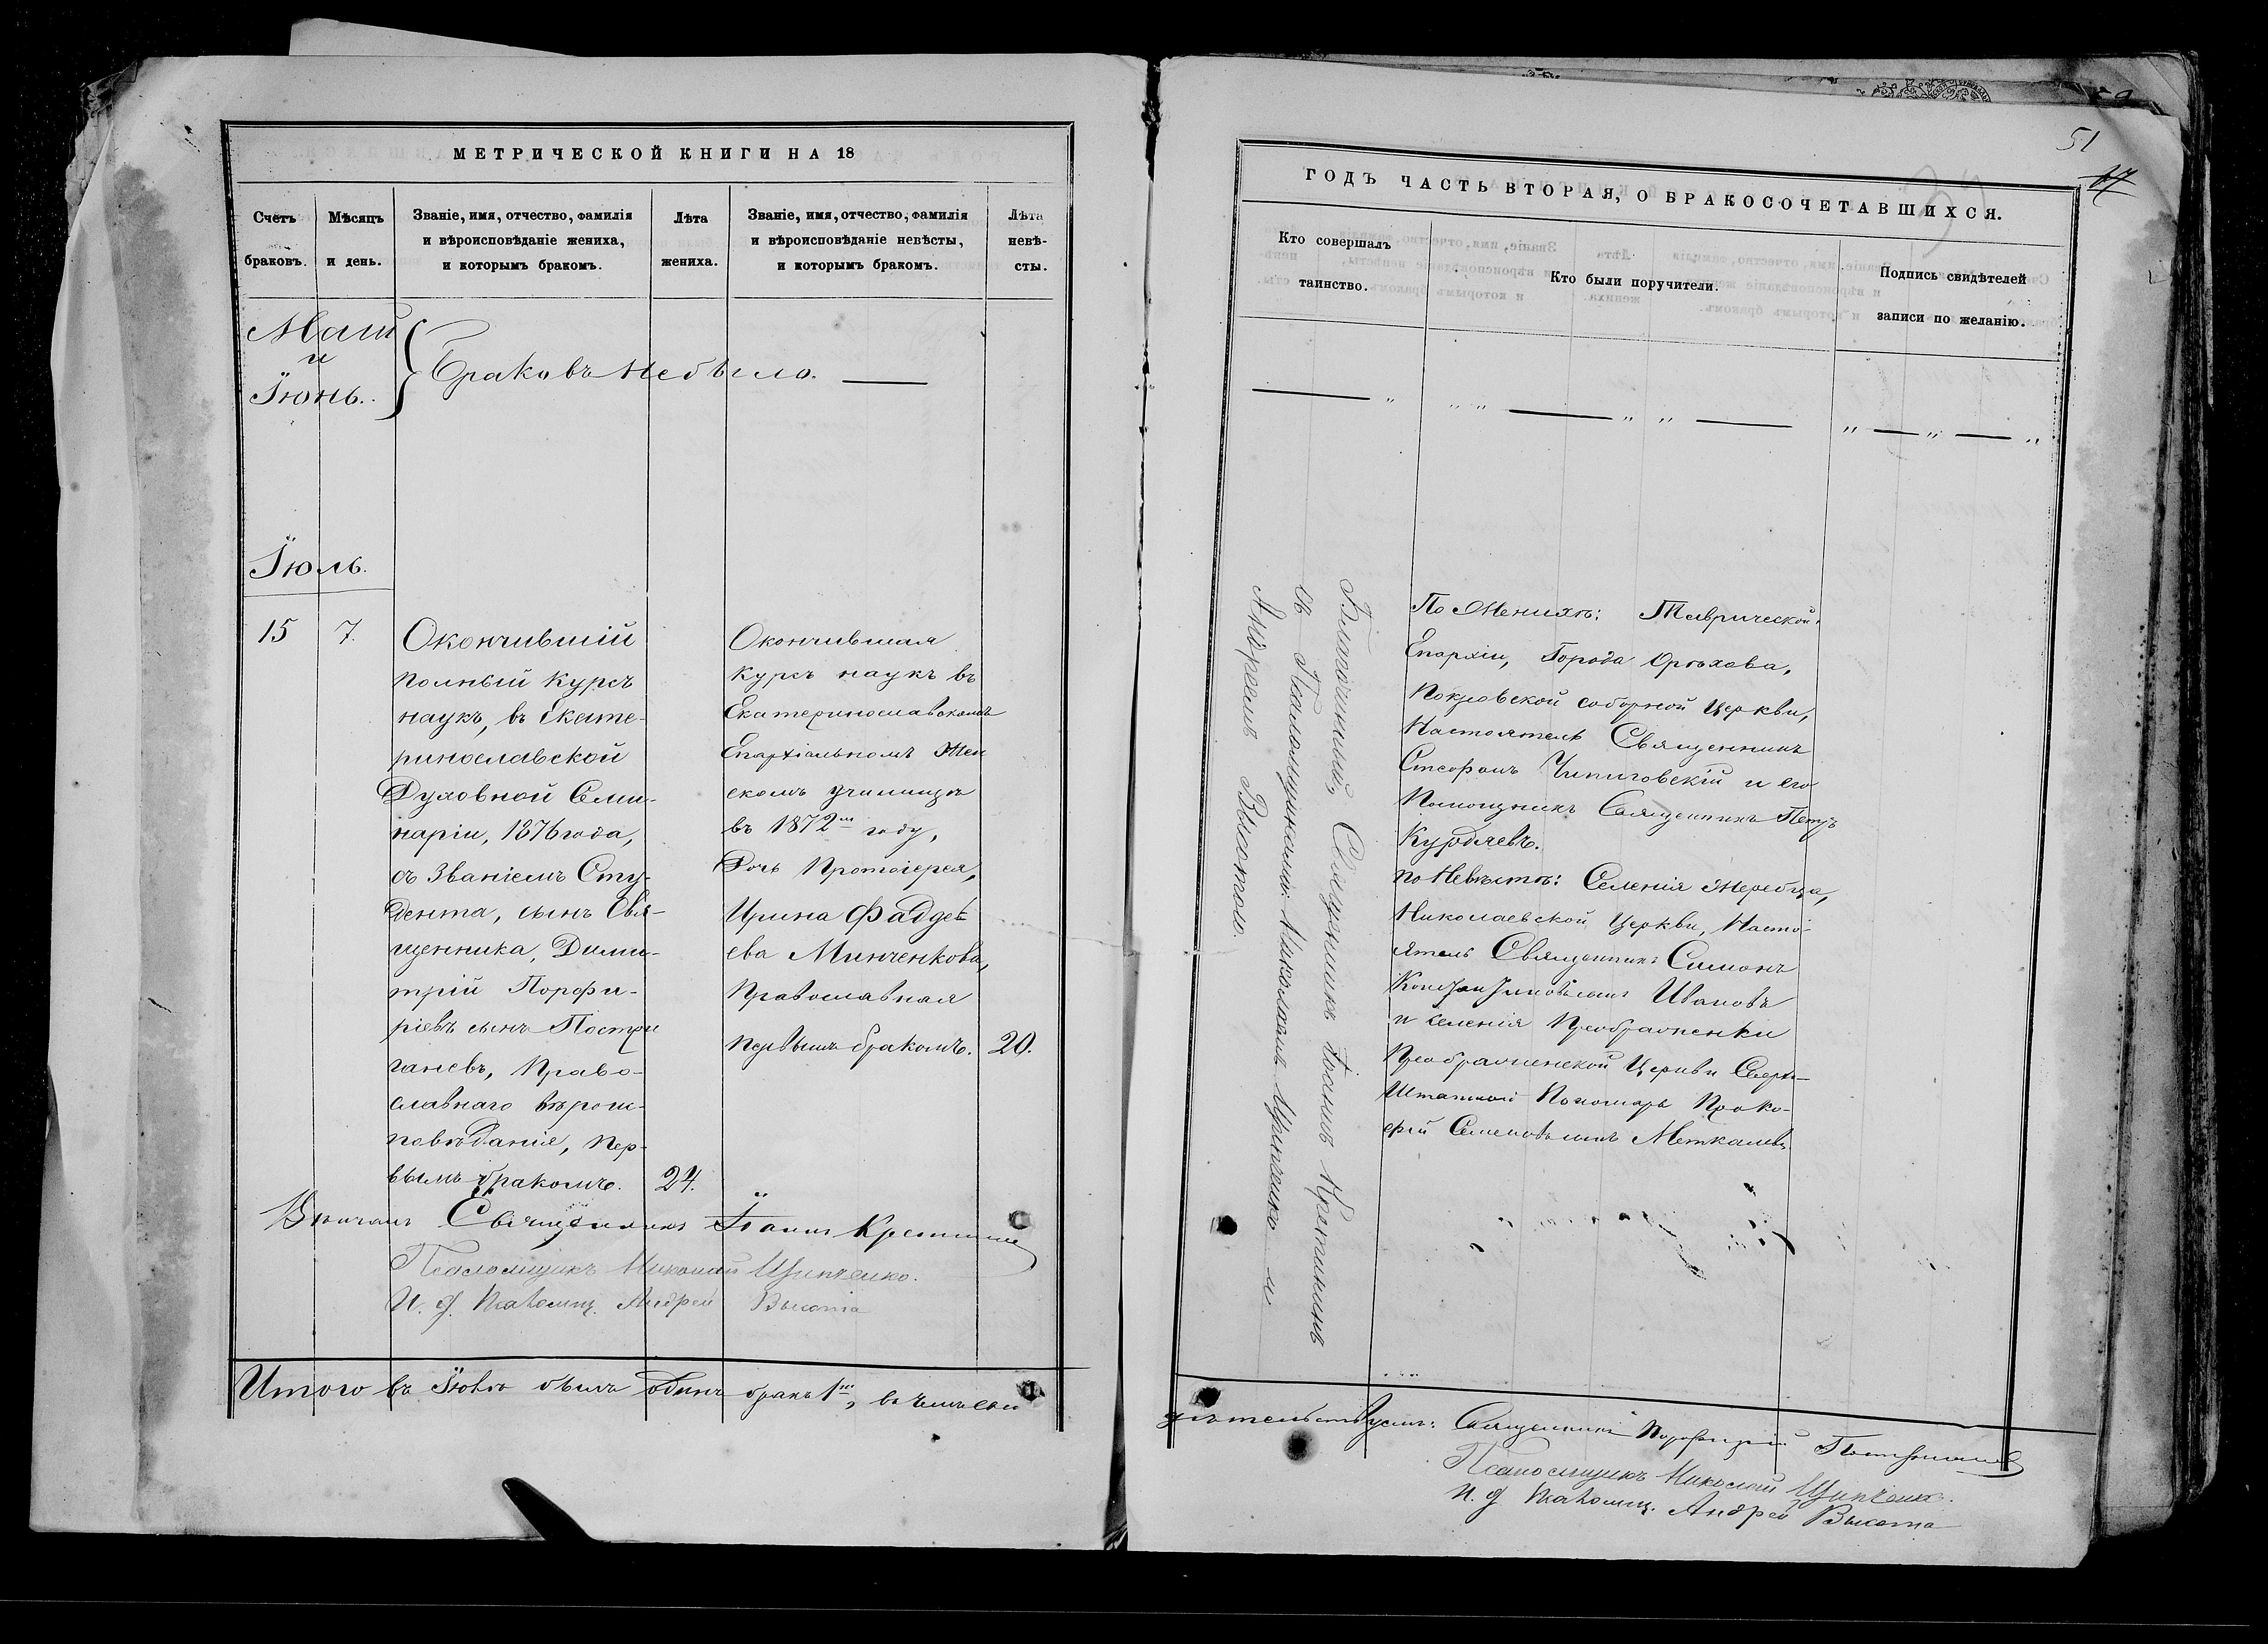 МЕТРИЧЕСКОЙ КНИГИ НА 18
Счетъ браковъ.
Мѣсяцъ и день.
Званіе, имя, отчество, фамилія
и вѣроисповѣданіе жениха,
и которымъ бракомъ.
Лѣта жениха.
Званіе, имя, отчество, фамилія
и вѣроисповѣданіе невѣсты,
и которымъ бракомъ.
Лѣта невѣ-
сты.
Маій
и
Іюнь.
Браковъ небыло.
Іюль.
15
7.
Окончившій
полный курсъ
наукъ, въ Екате-
ринославской
Духовной Семи-
наріи, 1876 года,
съ Званіемъ Сту-
дента, сынъ Свя-
щенника, Дими-
трій Порфи-
ріевъ сынъ Постри
ганевъ, Право-
славнаго вѣроис-
повѣданія, пер-
вымъ бракомъ.
24.
Окончившая
курсъ наукъ въ
Екатеринославскомъ
Епархіальномъ Жен
скомъ училищѣ
въ 1872 году,
Дочь Протоіерея,
Ирина Фаддѣ
ева Минченкова,
Православная
первымъ бракомъ.
20.
Вѣнчалъ Священникъ Іоаннъ
Псаломщикъ Николай Щипченко.
И. д. Псаломщ. Андрей Высота
Итого въ Іюлѣ былъ одинъ бракъ 1, въ чемъ сви
51
17
ГОДЪ ЧАСТЬ ВТОРАЯ, О БРАКОСОЧЕТАВШИХСЯ.
Кто совершалъ
таинство.
Кто были поручители.
Подпись свидѣтелей
записи по желанію.
Священникъ Іоаннъ
съ Псаломщиками: Николаемъ Щипченко и
Андреемъ Высотою.
По Женихѣ: Таврической
Епархіи, Города Орѣхова,
Покровской соборной Церкви,
Настоятель Священникъ
Стефанъ и его
Помощникъ Священникъ Петръ
Курдяевъ.
по Невѣстѣ: Селенія Жеребца,
Николаевской Церкви, Насто-
ятель Священникъ Симонъ
Константиновъ сынъ Ивановъ
и селенія Преображенки
Преображенской Церкви Сверх-
Штатный Пономарь Проко-
фій Семеновъ сынъ
дѣтельствуемъ: Священникъ Порфирій
Псаломщикъ Николай Щипченко.
И. д Псаломщ. Андрей Высота